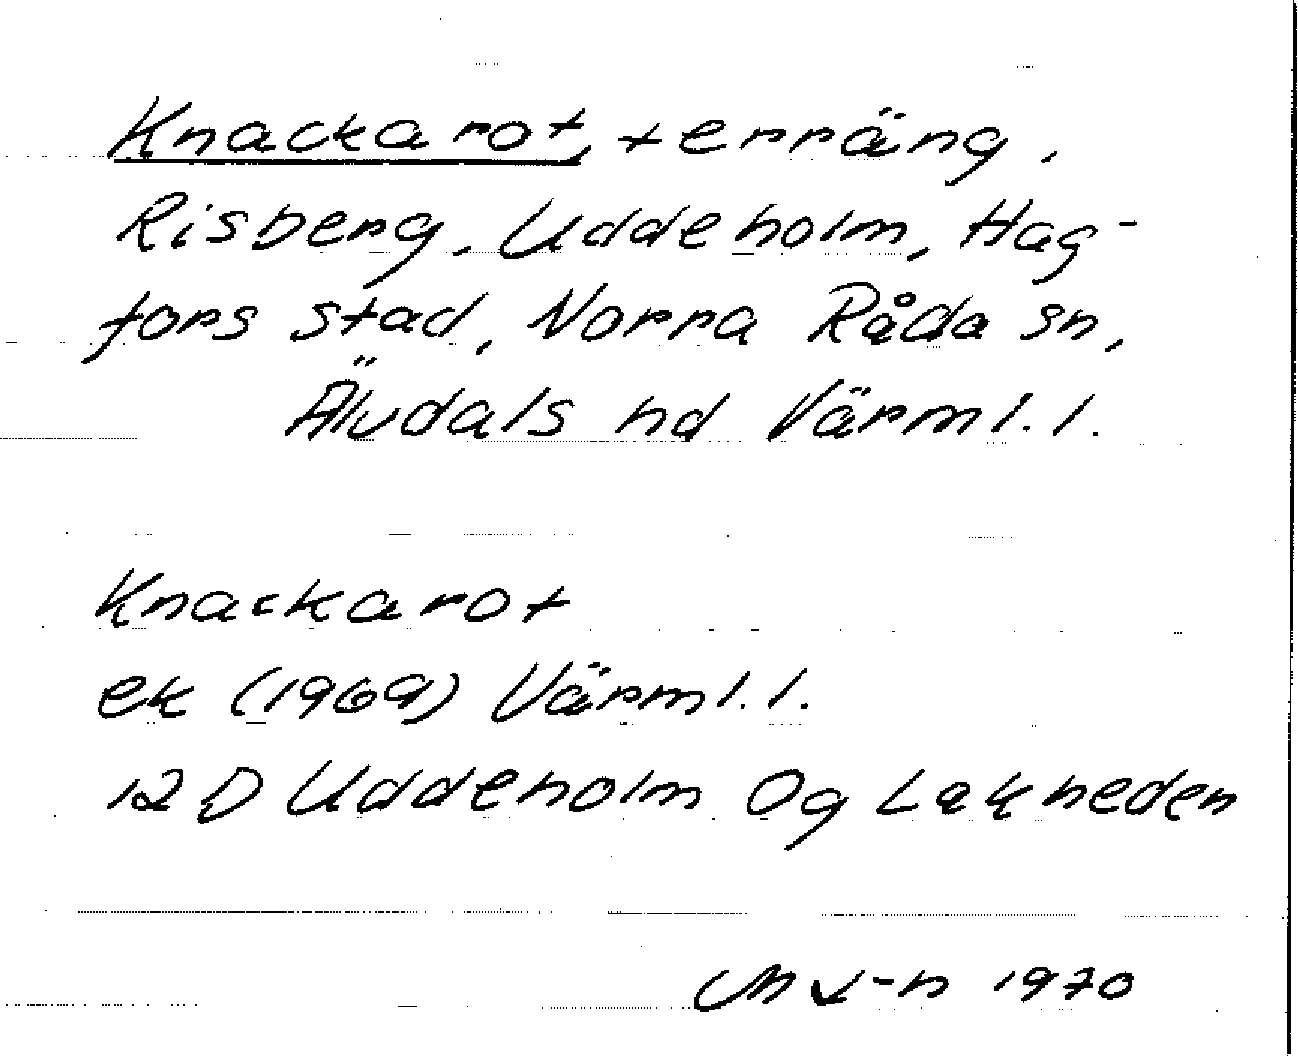 Knackarot, terräng,
Risberg, Uddeholm, Hag-
fors stad, Norra Råda sn,
Älvdals hd Värml. l.
Knackarot
ek (1969) Värml. l.
12 D Uddeholm Og Lakheden
1970